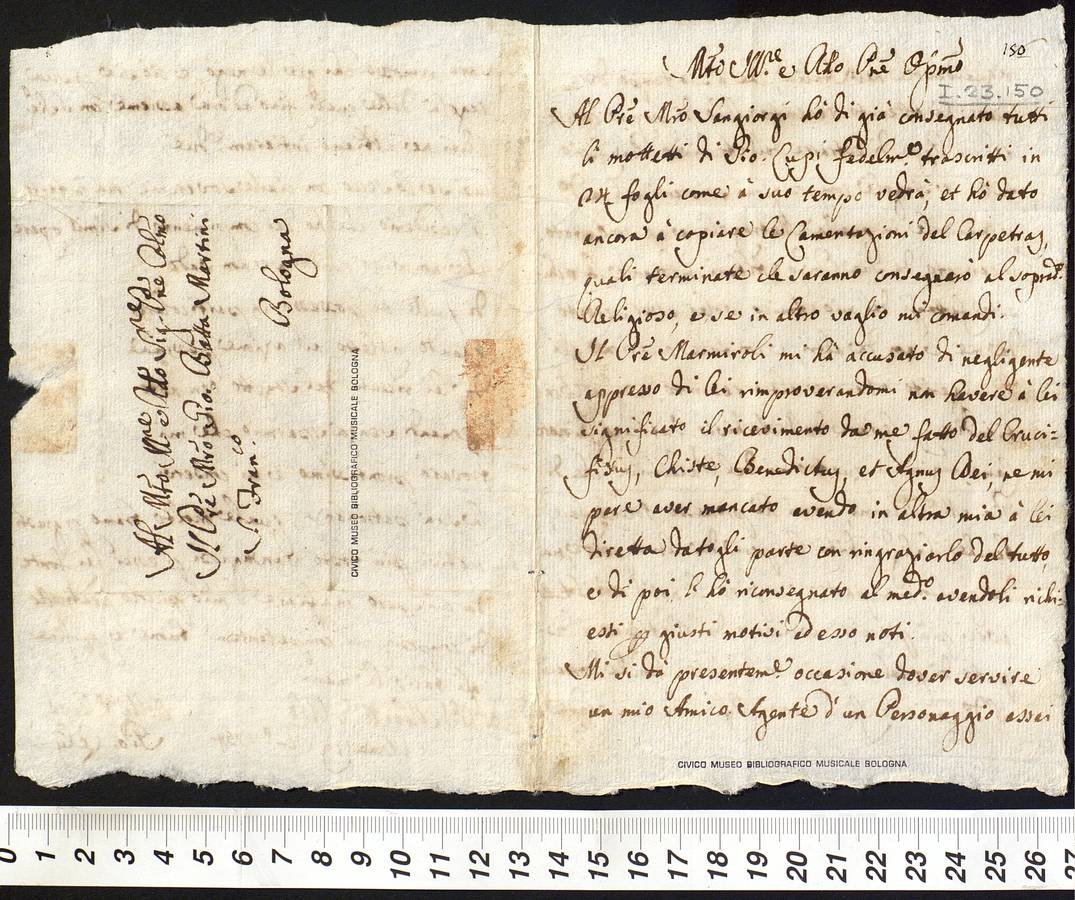 Al Mto Illre e Rdo Sig.r Pne Colmo
Il Pre Mro Gio. Batta Martini
S. Franco.
Bologna
CIVICO MUSEO BIBLIOGRAFICO MUSICALE BOLOGNA
150
I.23.150
Mto Ill.re e Rdo Pre
Al Pre Mro Sangiorgi hò di già consegnato tutti
li mottetti di Gio. Lupi fedelm.e trascritti in
24 fogli come à suo tempo vedrà, et hò dato
ancora à copiare le Lamentazioni del Carpetras,
quali terminate che saranno consegnarò al soprad.o
Religioso, e se in altro vaglio mi comandi.
Il Pre Marmiroli mi hà accusato di negligente
appresso di lei rimproverandomi non havere à lei
significato il ricevimento da me fatto del Cruci=
fixus, Christe, Benedictus, et Agnus Dei, ne mi
pare aver mancato avendo in altra mia à lei
diretta datogli parte con ringraziarlo del tutto,
e di poi li hò riconsegnato al med.o avendoli richi=
esti giusti motivi ad esso noti.
Mi si dà presentem.e occasione dover servire
un mio Amico Agente d'un Personaggio assai
CIVICO MUSEO BIBLIOGRAFICO MUSICALE BOLOGNA
0 1 2 3 4 5 6 7 8 9 10 11 12 13 14 15 16 17 18 19 20 21 22 23 24 25 26 27